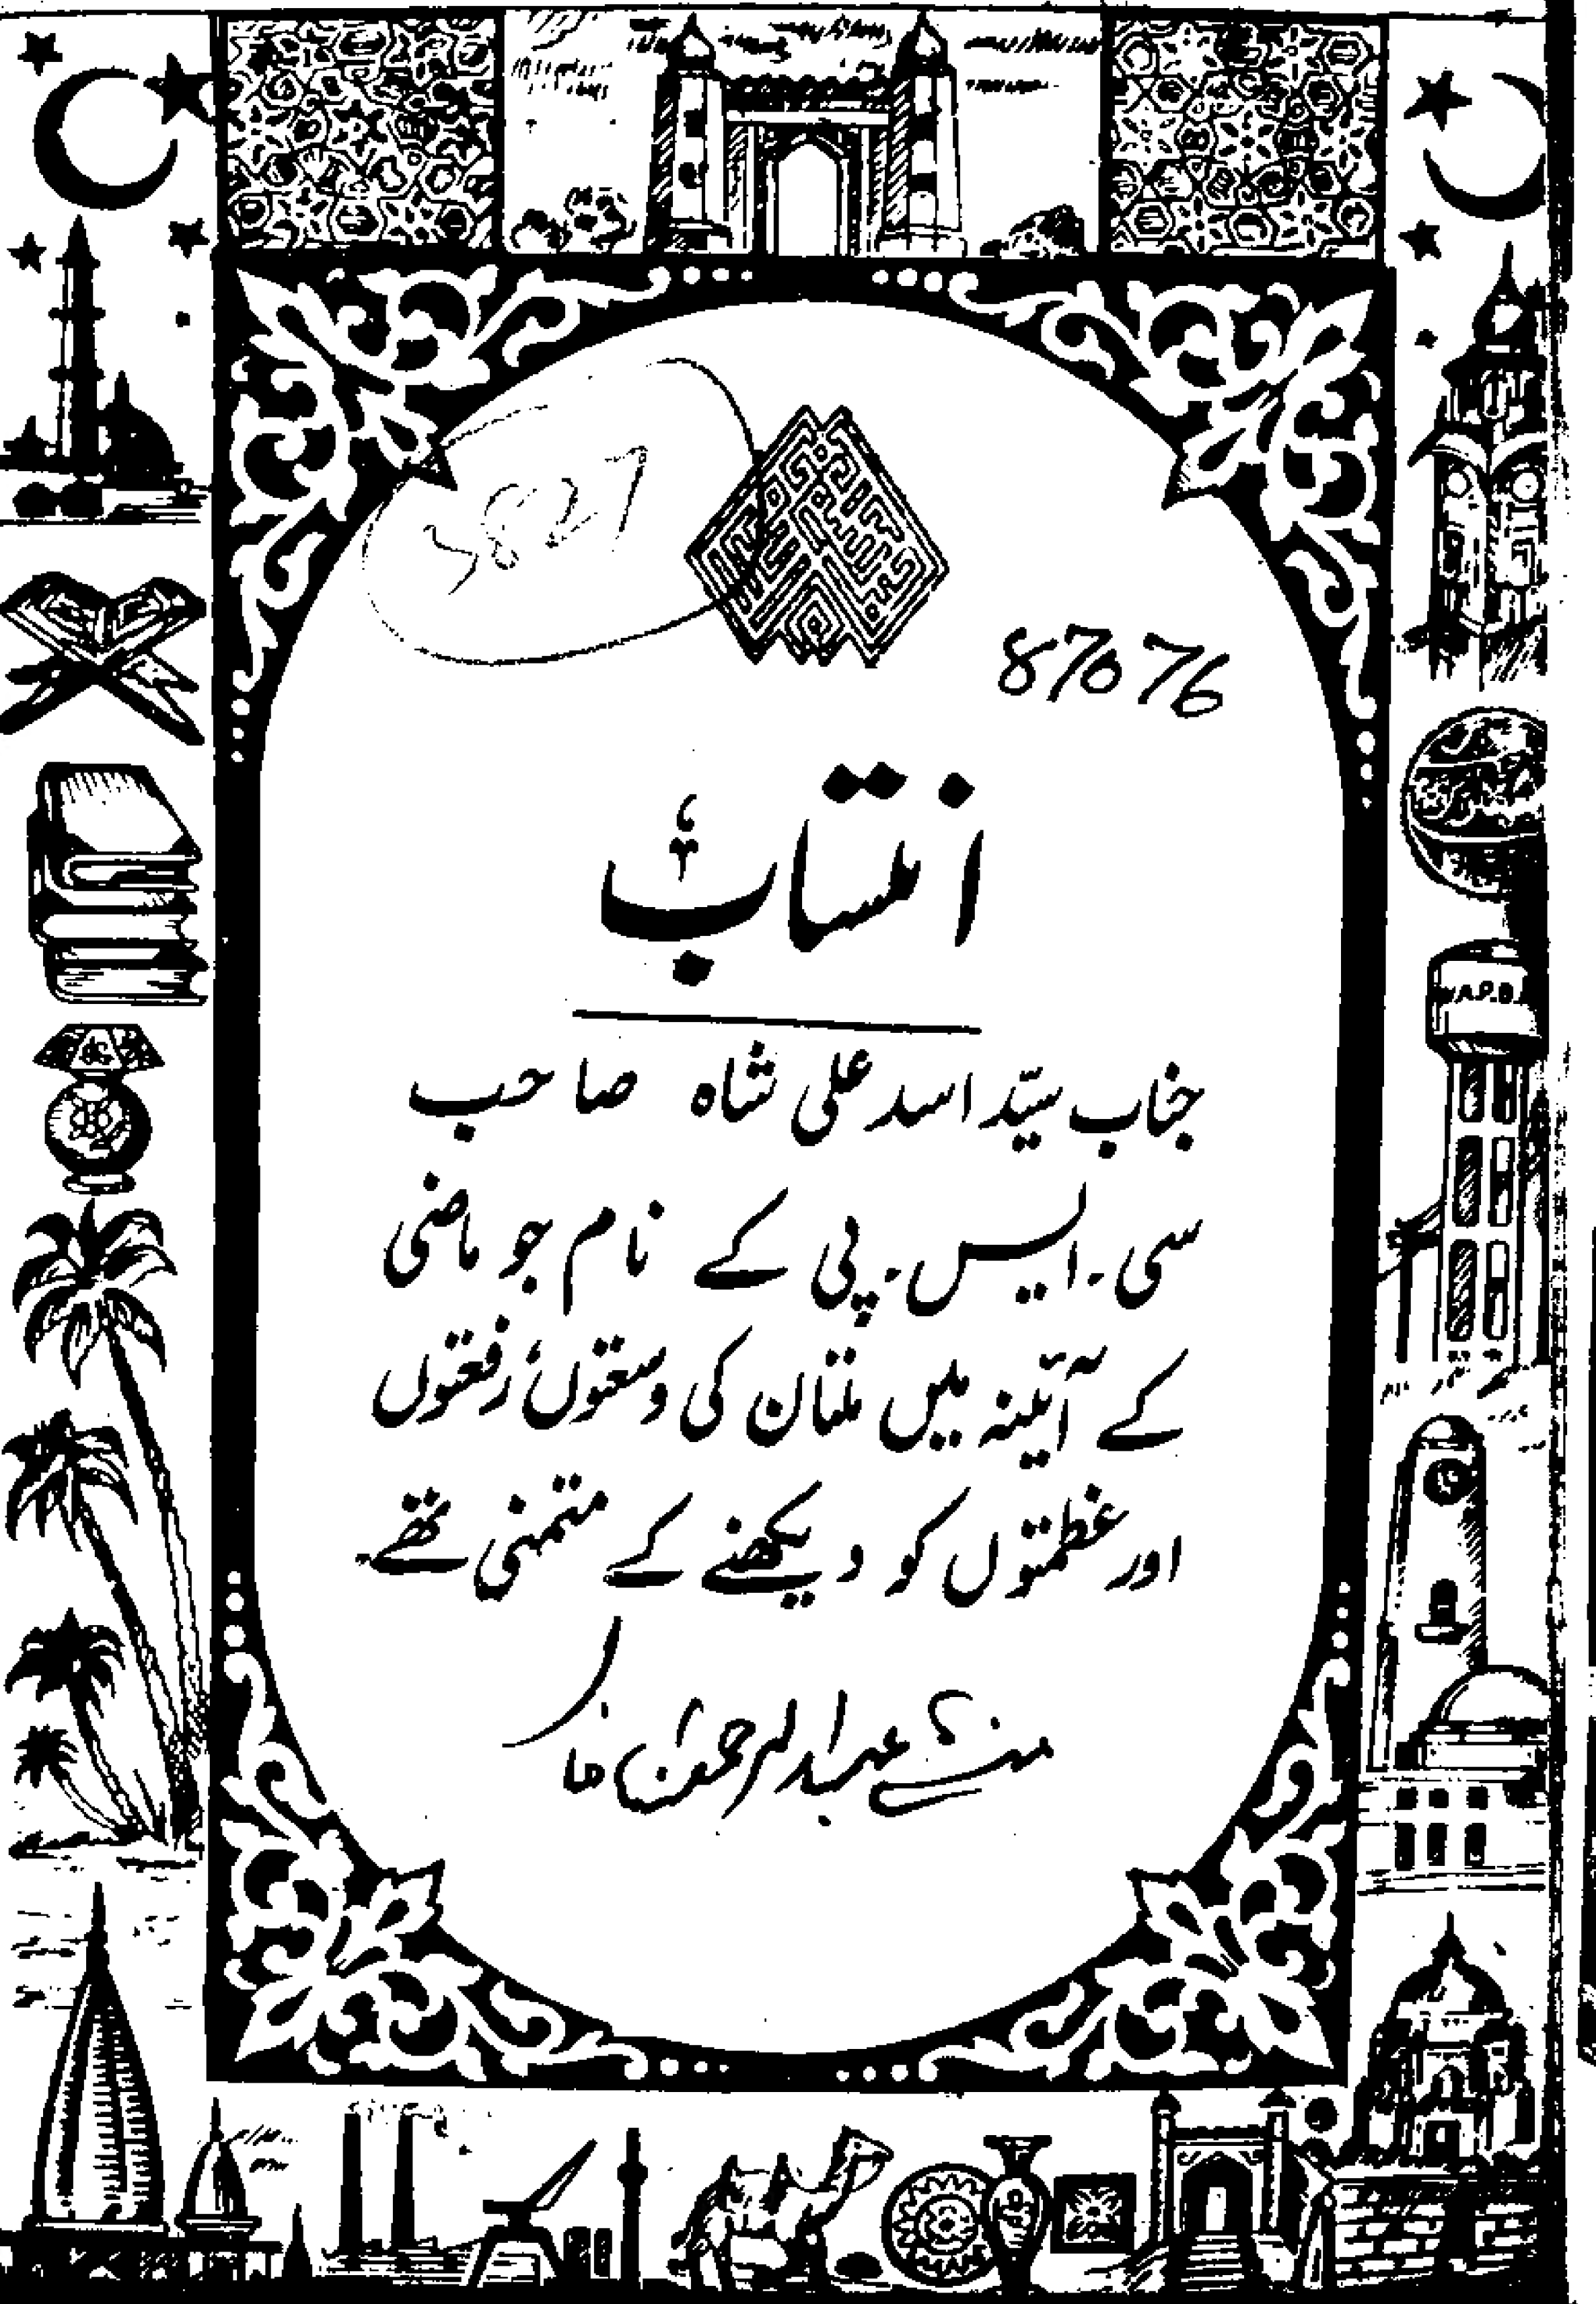 87076
انتساب
جناب سیّد اسد علی شاہ صاحب
سی۔ ایس۔ پی کے نام جو ماضی
کے آئینہ میں ملتان کی وسعتوں، رفعتوں
اور عظمتوں کو دیکھنے کے متمنی تھے۔
منشی عبدالرحمٰن خاں